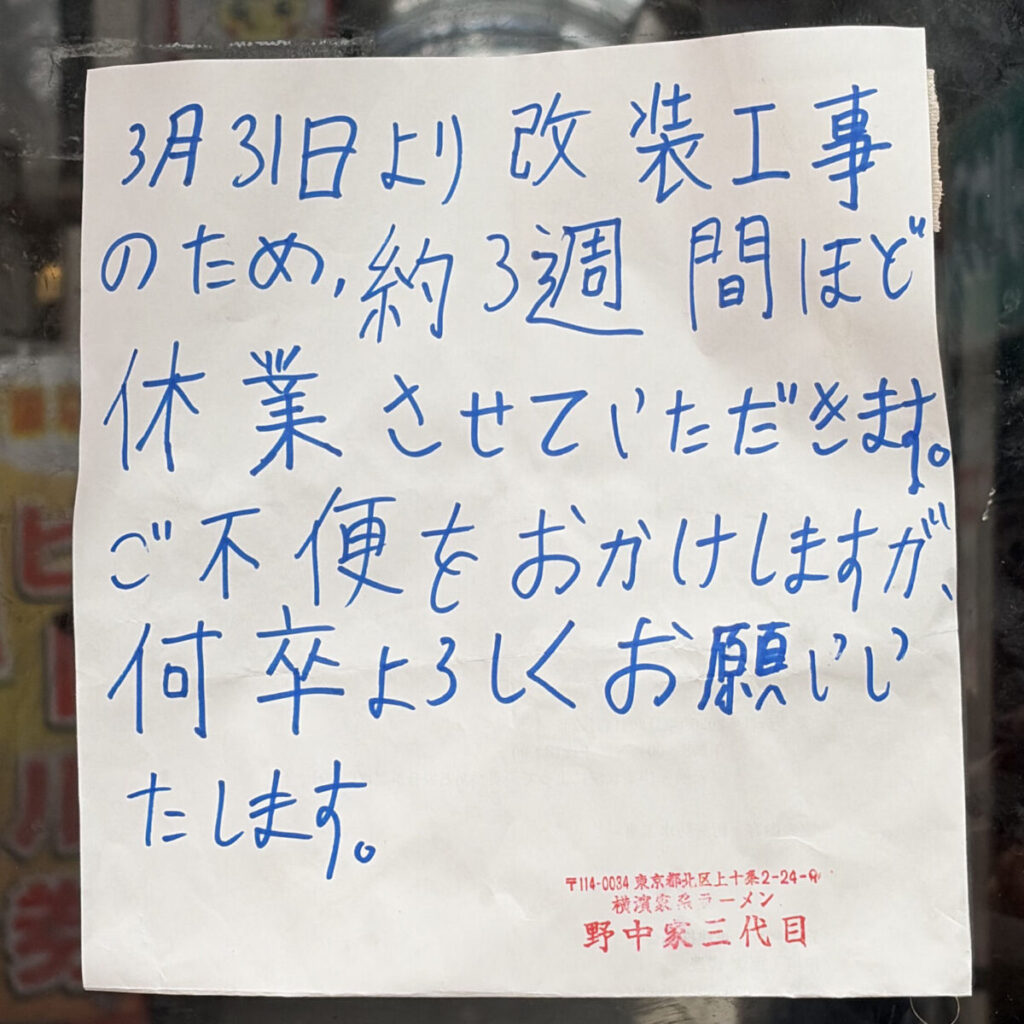 3月31日より改装工事
のため,約3週間ほど
休業させていただきます。
ご不便をおかけしますが、
何卒よろしくお願いい
たします。
〒114-0034 東京都北区上十条2-24-
横濱家系ラーメン
野中家三代目